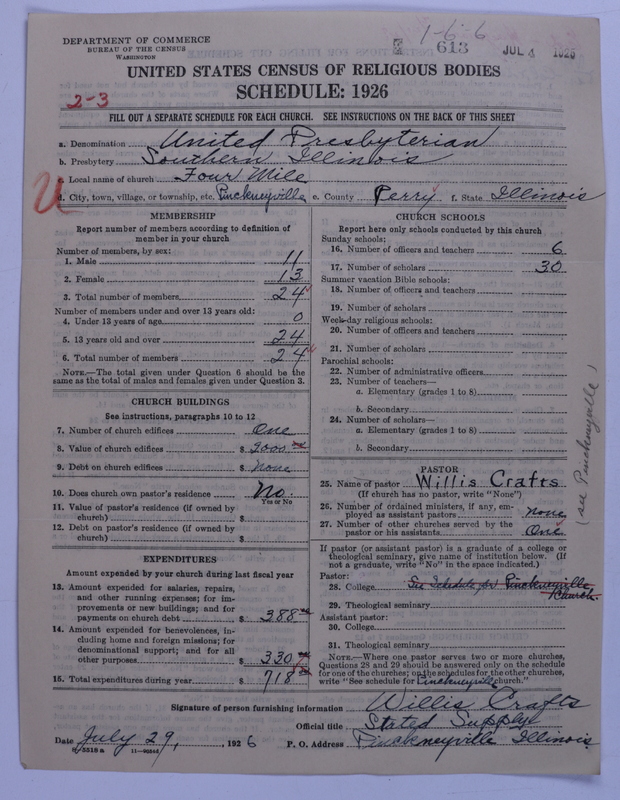 1-6-6
DEPARTMENT OF COMMERCE
BUREAU OF THE CENSUS
WASHINGTON
613 JUL 4
UNITED STATES CENSUS OF RELIGIOUS BODIES
SCHEDULE: 1926
2-3
FILL OUT A SEPARATE SCHEDULE FOR EACH CHURCH. SEE INSTRUCTIONS ON THE BACK OF THIS SHEET
a. Denomination United Presbyterian
b. Presbytery Southern Illinois
c. Local name of church Four Mile
d. City, town, village, or township, etc. Pinckneyville e. County Perry f. State Illinois
MEMBERSHIP
Report number of members according to definition of
member in your church
Number of members, by sex:
1. Male 11
2. Female 13
3. Total number of members 24
Number of members under and over 13 years old:
4. Under 13 years of age 0
5. 13 years old and over 24
6. Total number of members 24
NOTE.—The total given under Question 6 should be the
same as the total of males and females given under Question 3.
CHURCH BUILDINGS
See instructions, paragraphs 10 to 12
7. Number of church edifices One
8. Value of church edifices $ 2000
9. Debt on church edifices $ None
10. Does church own pastor's residence No.
Yes or No
11. Value of pastor's residence (if owned by
church) $
12. Debt on pastor's residence (if owned by
church) $
EXPENDITURES
Amount expended by your church during last fiscal year
13. Amount expended for salaries, repairs,
and other running expenses; for im-
provements or new buildings; and for
payments on church debt $ 388
14. Amount expended for benevolences, in-
cluding home and foreign missions; for
denominational support; and for all
other purposes $ 330
15. Total expenditures during year $ 718
CHURCH SCHOOLS
Report here only schools conducted by this church
Sunday schools:
16. Number of officers and teachers 6
17. Number of scholars 30
Summer vacation Bible schools:
18. Number of officers and teachers
19. Number of scholars
Week-day religious schools:
20. Number of officers and teachers
21. Number of scholars
Parochial schools:
22. Number of administrative officers
23. Number of teachers—
a. Elementary (grades 1 to 8)
b. Secondary
24. Number of scholars—
a. Elementary (grades 1 to 8)
b. Secondary
(see Pinckneyville)
PASTOR
25. Name of pastor Willis Crafts
(If church has no pastor, write "None")
26. Number of ordained ministers, if any, em-
ployed as assistant pastors None
27. Number of other churches served by the
pastor or his assistants One
If pastor (or assistant pastor) is a graduate of a college or
theological seminary, give name of institution below. (If
not a graduate, write "No" in the space indicated.)
Pastor:
28. College See Schedule for Pinckneyville
Church
29. Theological seminary
Assistant pastor:
30. College
31. Theological seminary
NOTE.—Where one pastor serves two or more churches,
Questions 28 and 29 should be answered only on the schedule
for one of the churches; on the schedules for the other churches,
write "See schedule for Pinckneyville church."
Signature of person furnishing information Willis Crafts
Official title Stated Supply
Date July 29, 1926 P. O. Address Pinckneyville Illinois